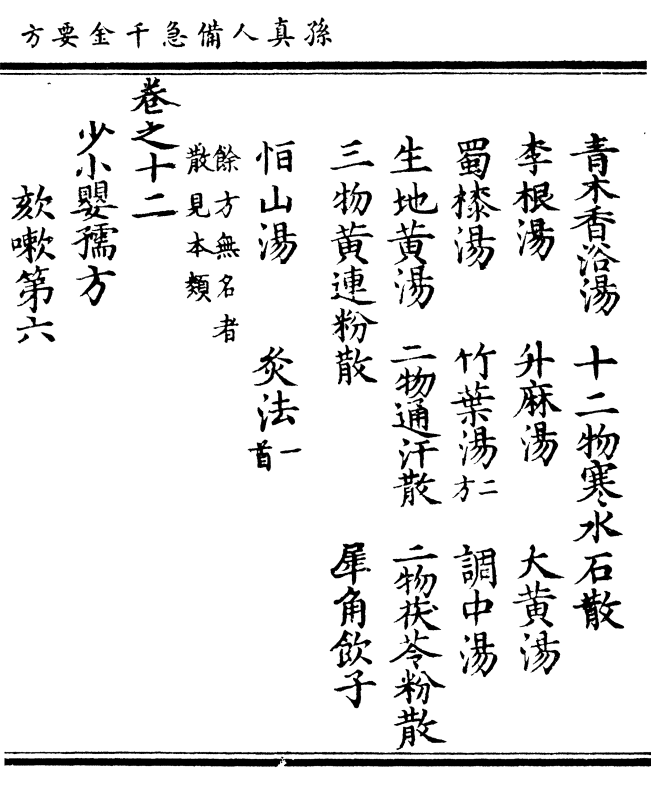 孫真人備急千金要方
青木香浴湯 十二物寒水石散
李根湯 升麻湯 大黄湯
蜀㯃湯 竹葉湯二方 調中湯
生地黄湯 二物通汗散 二物茯苓粉散
三物黄連粉散 犀角飲子
恒山湯 灸法一首
餘方無名者
散見本類
卷之十二
少小嬰孺方
欬嗽第六